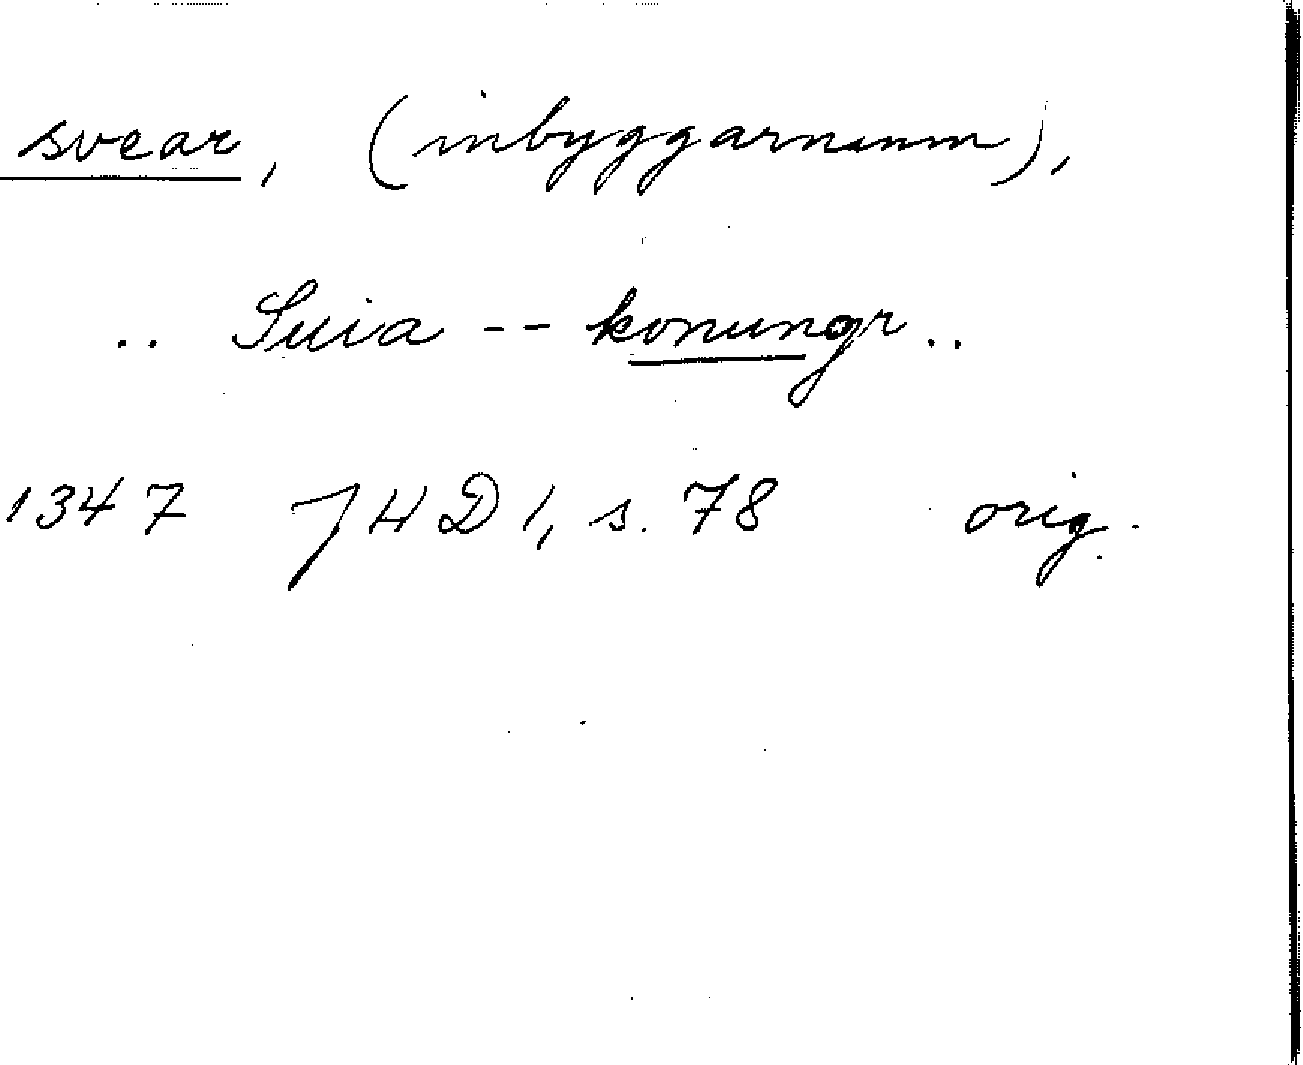 svear, (inbyggarnamn),
.. Suia -- konungr ..
1347 JHD 1, s. 78 orig.